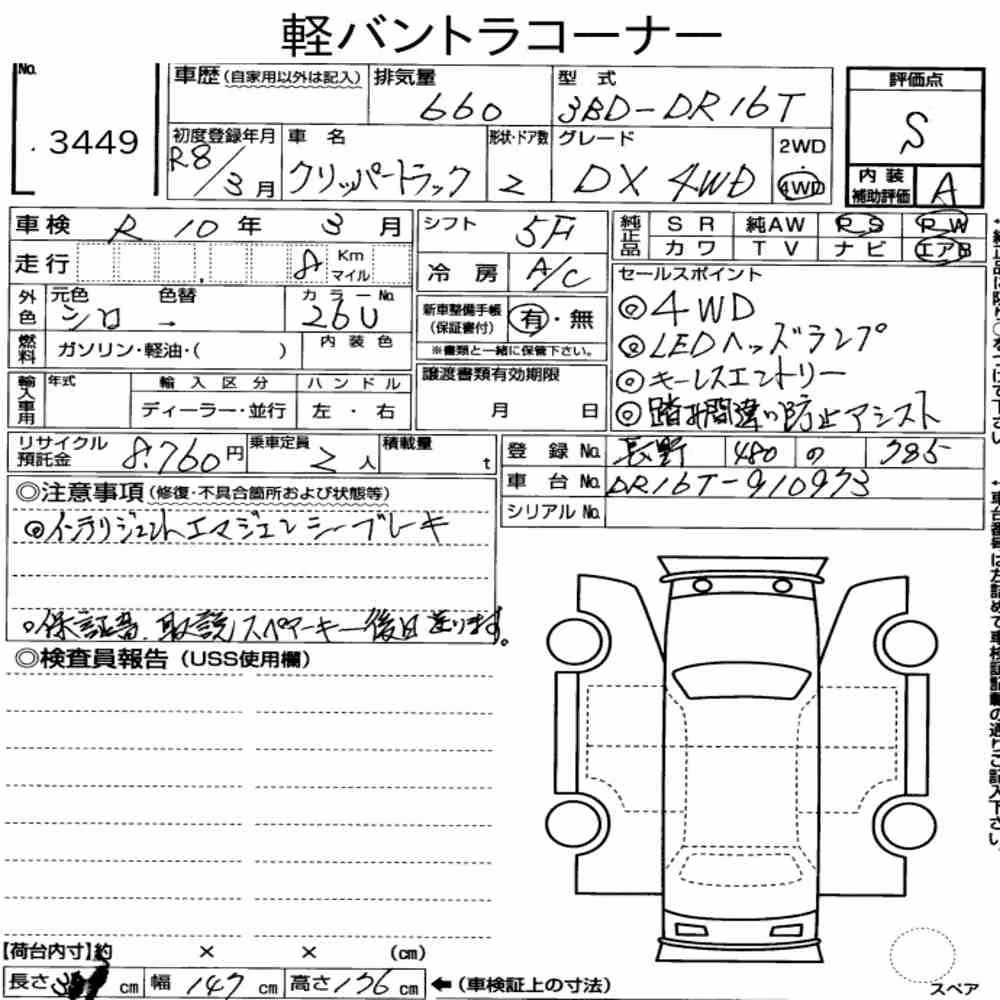 軽バントラコーナー
No.
3449
車歴(自家用以外は記入)
排気量
660
型式
3BD-DR16T
評価点
S
初度登録年月
R8/3月
車名
クリッパートラック
形状・ドア数
2
グレード
DX 4WD
2WD
4WD
内装
補助評価
A
車検 R 10年 3月
シフト
5F
純正品
SR 純AW PS PW
カワ TV ナビ エアB
走行 8 Km マイル
冷房 A/C
セールスポイント
◎4WD
◎LEDヘッズランプ
◎キーレスエントリー
◎踏み間違い防止アシスト
外色
元色 色替
シロ →
カラーNo.
26U
新車整備手帳
(保証書付)
有・無
※書類と一緒に保管下さい。
燃料
ガソリン・軽油・( )
内装色
輸入車用
年式
輸入区分
ディーラー・並行
ハンドル
左・右
譲渡書類有効期限
月 日
リサイクル
預託金
8.760円
乗車定員
2人
積載量
t
登録No. 長野 480 の 785
車台No. DR16T-910973
シリアルNo.
◎注意事項(修復・不具合箇所および状態等)
◎インテリジェントエマジェンシーブレーキ
○保証書、取説、スペアーキー後日送ります。
◎検査員報告(USS使用欄)
【荷台内寸】約 × × (cm)
長さ cm 幅 147 cm 高さ 176 cm ←(車検証上の寸法)
スペア